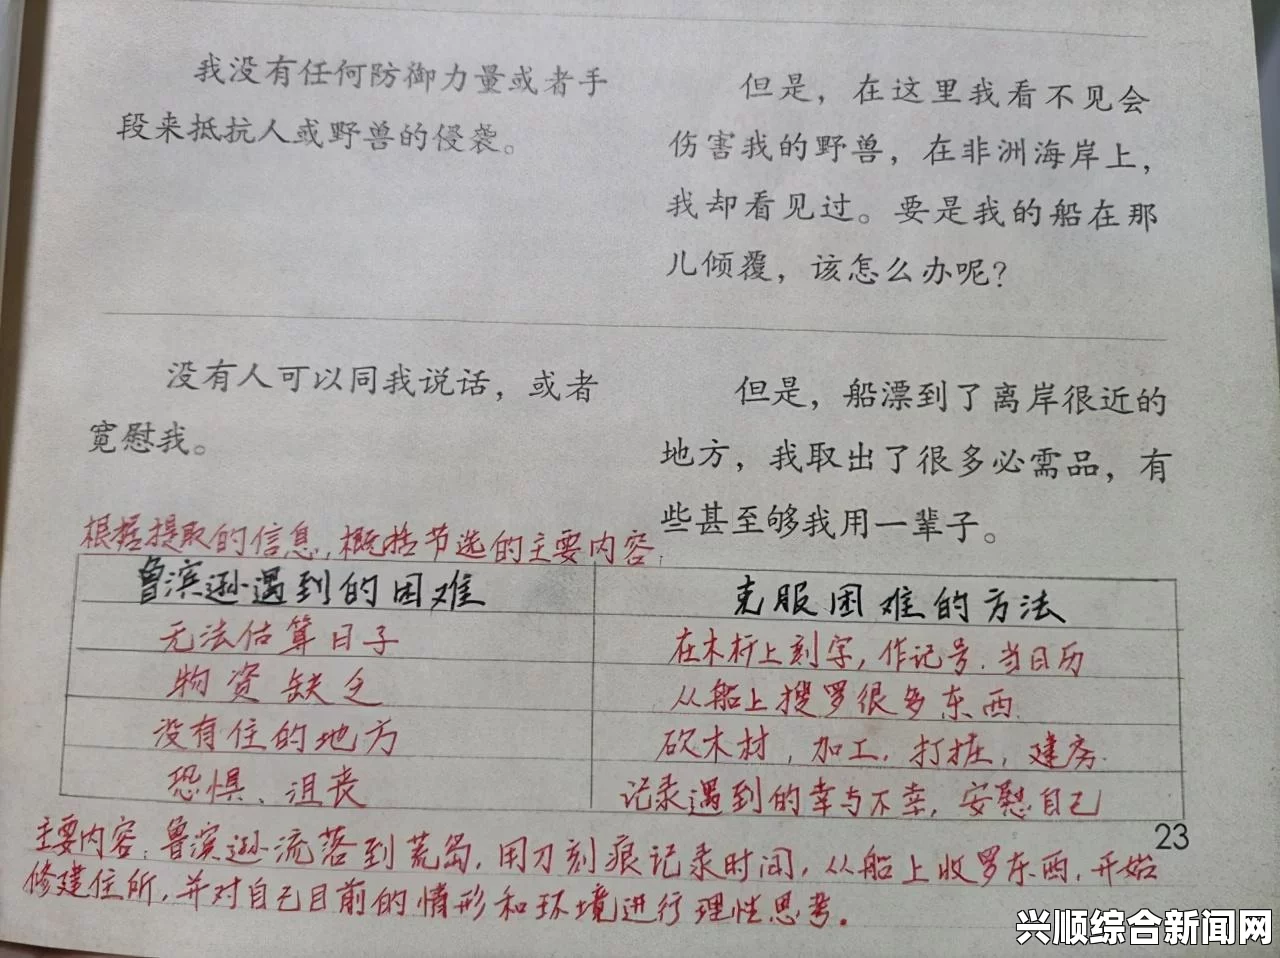 我没有任何防御力量或者手
段来抵抗人或野兽的侵袭。
但是，在这里我看不见会
伤害我的野兽，在非洲海岸上，
我却看见过。要是我的船在那
儿倾覆，该怎么办呢？
没有人可以同我说话，或者
宽慰我。
但是，船漂到了离岸很近的
地方，我取出了很多必需品，有
些甚至够我用一辈子。
根据提取的信息，概括节选的主要内容：
鲁滨逊遇到的困难
克服困难的方法
无法估算日子
在木杆上刻字，作记号，当日历
物资缺乏
从船上搜罗很多东西
没有住的地方
砍木材，加工，打桩，建房
恐惧、沮丧
记录遇到的幸与不幸，安慰自己
23
主要内容：鲁滨逊流落到荒岛，用刀刻痕记录时间，从船上收罗东西，开始
修建住所，并对自己目前的情形和环境进行理性思考。
兴顺综合新闻网